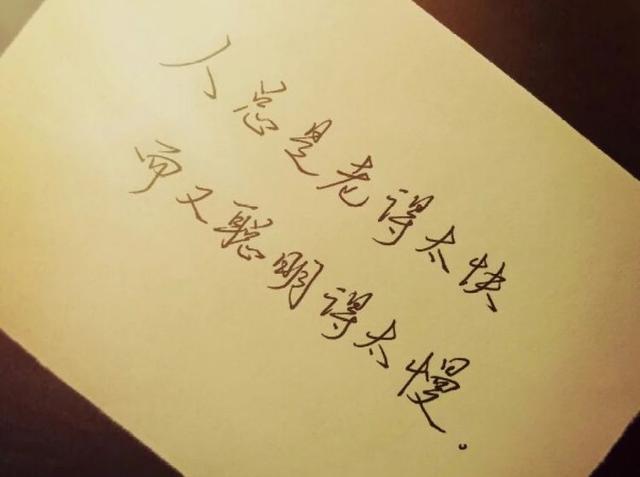 人总是老得太快
而又聪明得太慢.